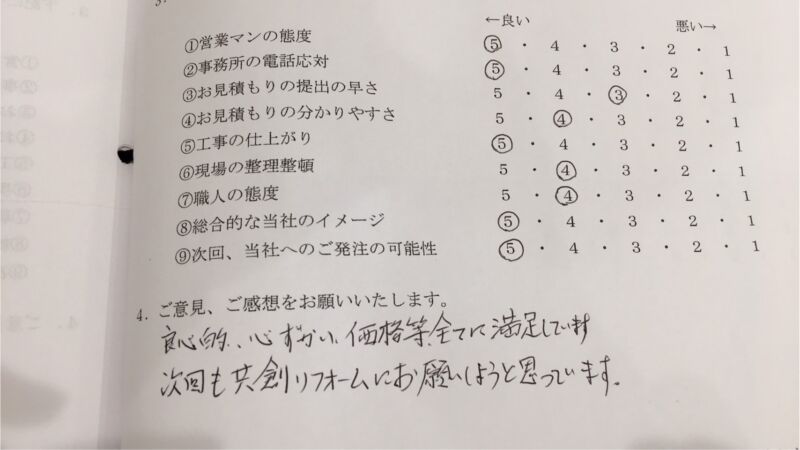 ←良い 悪い→
①営業マンの態度 5・4・3・2・1
②事務所の電話応対 5・4・3・2・1
③お見積もりの提出の早さ 5・4・3・2・1
④お見積もりの分かりやすさ 5・4・3・2・1
⑤工事の仕上がり 5・4・3・2・1
⑥現場の整理整頓 5・4・3・2・1
⑦職人の態度 5・4・3・2・1
⑧総合的な当社のイメージ 5・4・3・2・1
⑨次回、当社へのご発注の可能性 5・4・3・2・1
4. ご意見、ご感想をお願いいたします。
良心的、心ずかい、価格等、全てに満足しています
次回も共創リフォームにお願いしようと思っています。